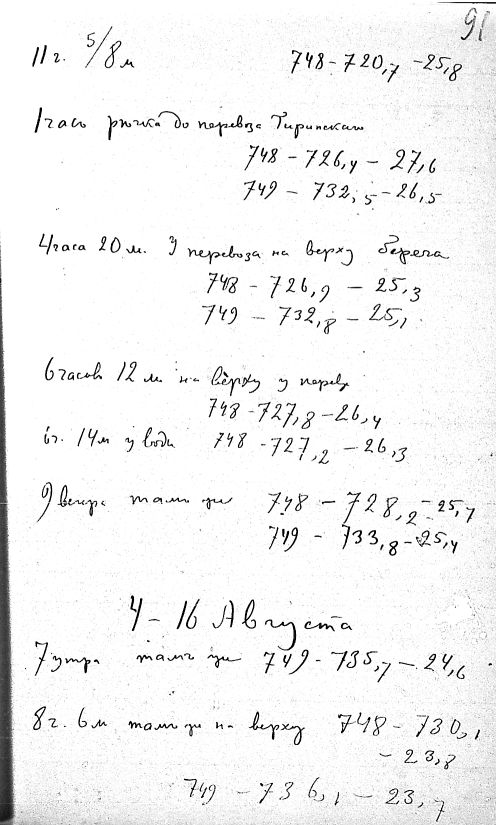 91
11 г. 5/8 м 748 - 720,7 - 25,8
1 часъ рѣчка до перевоза Тиринскаго
748 - 726,4 - 27,6
749 - 732,5 - 26,5
4 часа 20 м. У перевоза на верху берега
748 - 726,9 - 25,3
749 - 732,8 - 25,1
6 часовъ 12 м на верху у перев
748 - 727,8 - 26,4
6 г. 14 м у воды 748 - 727,2 - 26,3
9 вечера тамъ же 748 - 728,2 - 25,7
749 - 733,8 - 25,4
4 - 16 Августа
7 утра тамъ же 749 - 735,7 - 24,6
8 г. 6 м тамъ же на верху 748 - 730,1
- 23,8
749 - 736,1 - 23,7